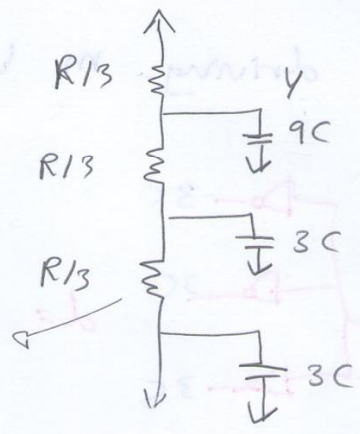 R/3
Y
9C
R/3
3C
R/3
3C